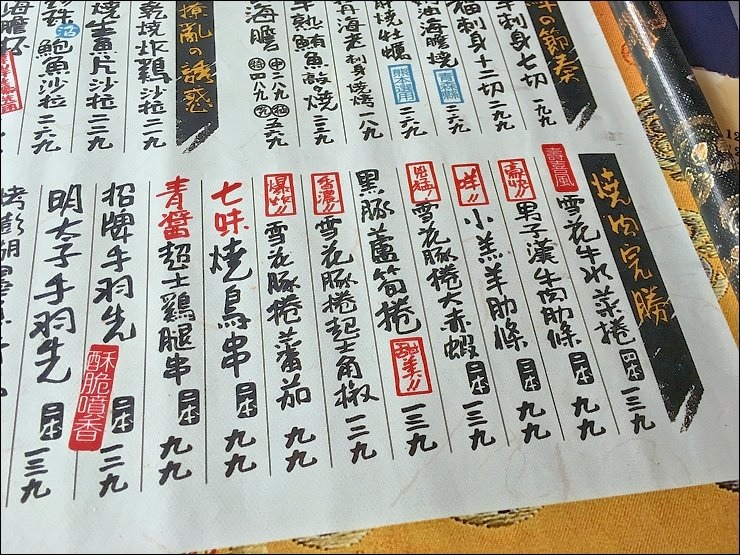 牛の節奏
牛刺身七切 一九九
刺身十二切 二九九
海膽燒 青森縣 二六九
燒牡蠣 熊本直甲 二六九
丹海老刺身燒烤 一八九
半熟鮪魚骰子燒 二三九
海膽 特四八九
撩亂の誘惑
乾燒炸鷄沙拉 二一九
燒生魚片沙拉 二一九
鮑魚沙拉 二六九
燒肉完勝
壽喜風 雪花牛水菜捲 四本 一三九
男子漢牛肉肋條 二本 九九
小羔羊肋條 二本 一三九
雪花豚捲大赤蝦 二本 一三九
黑豚蘆筍捲 甜美!! 一三九
香濃!! 雪花豚捲起士角椒 一二九
爆炸!! 雪花豚捲蕃茄 九九
七味燒鳥串 二本 九九
青醬起士鷄腿串 二本 九九
招牌手羽先 酥脆噴香 二本 一三九
明太子手羽先 二本 一三九